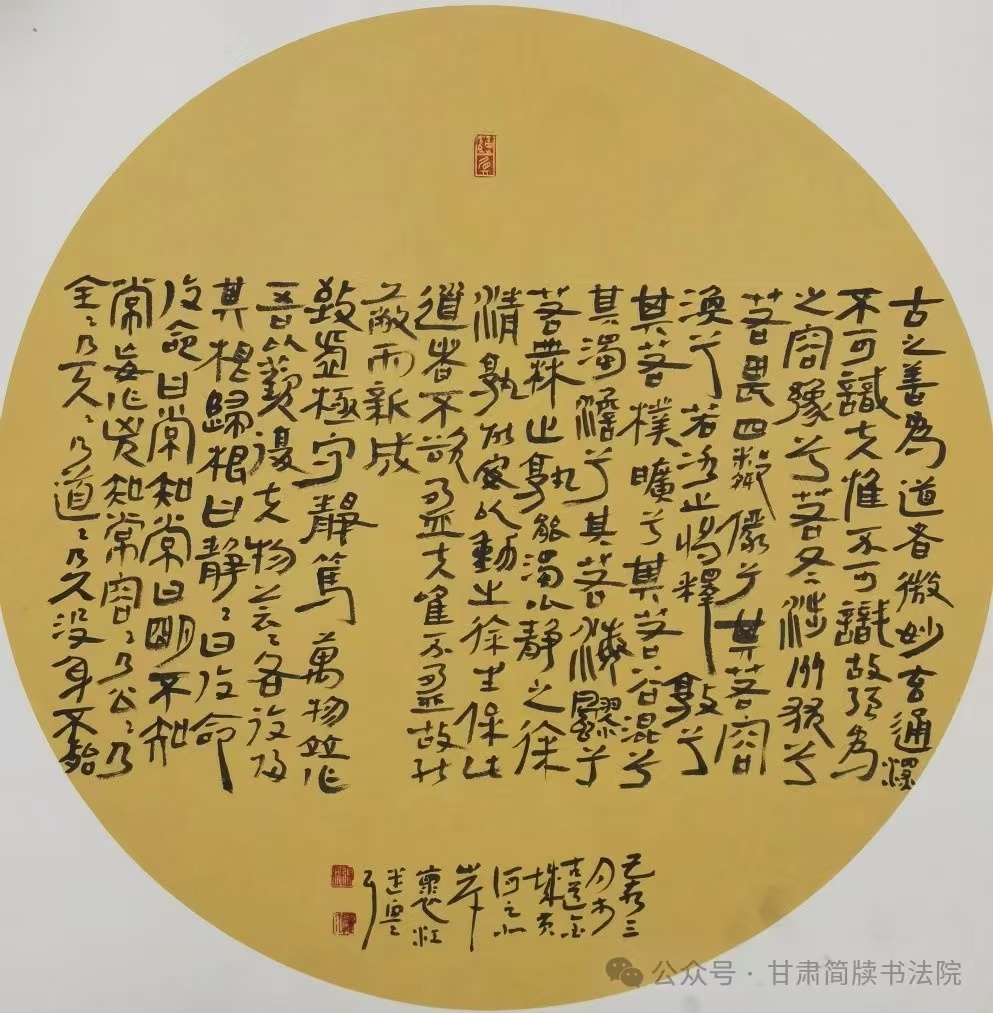 古之善為道者微妙玄通深
不可識夫惟不可識故強為
之容豫兮若冬〻涉川猶兮
若畏四鄰儼兮其若容
渙兮若冰之將釋敦兮
其若樸曠兮其若谷混兮
其濁澹兮其若海飂乎
若無止孰能濁以靜之徐
清孰能安以動之徐生保此
道者不欲盈夫唯不盈故能
蔽而新成
致虛極守靜篤萬物並作
吾以觀復夫物芸〻各復歸
其根歸根曰靜〻曰復命
復命曰常知常曰明不知
常妄作凶知常容〻乃公〻乃
全〻乃天〻乃道〻乃久没身不殆
春三
月
古道金
城黄
河之北
岸
公众号·甘肃简牍书法院